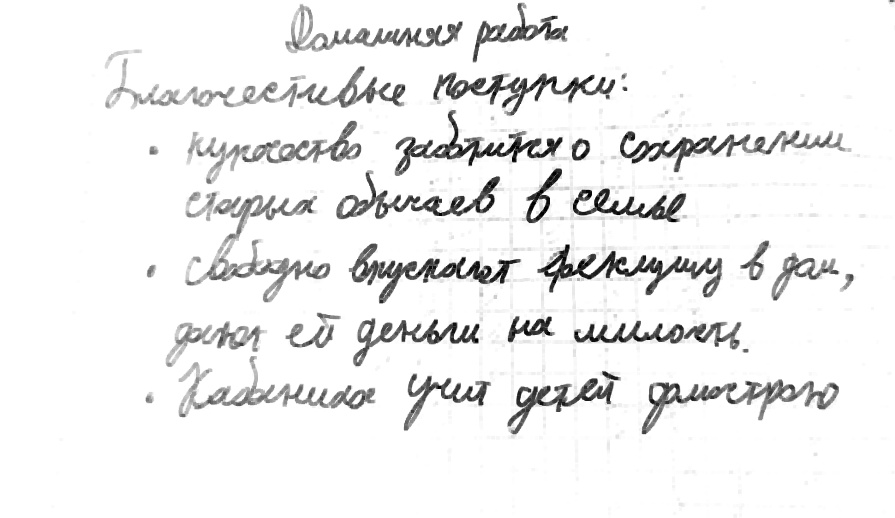 Домашняя работа
Благочестивые поступки:
• купчество заботится о сохранении
старых обычаев в семье
• свободно впускают Феклушу в дом,
дают ей деньги на милость.
• Кабаниха учит детей домострою